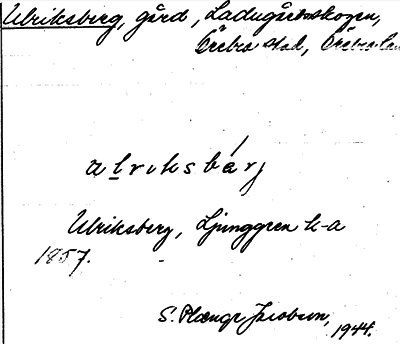 Ulriksberg, gård, Ladugårdsskogen,
Örebro stad, Örebro län
ulriksbárj
Ulriksberg, Ljunggren k-a
1857.
S. Jacobson,
1944.